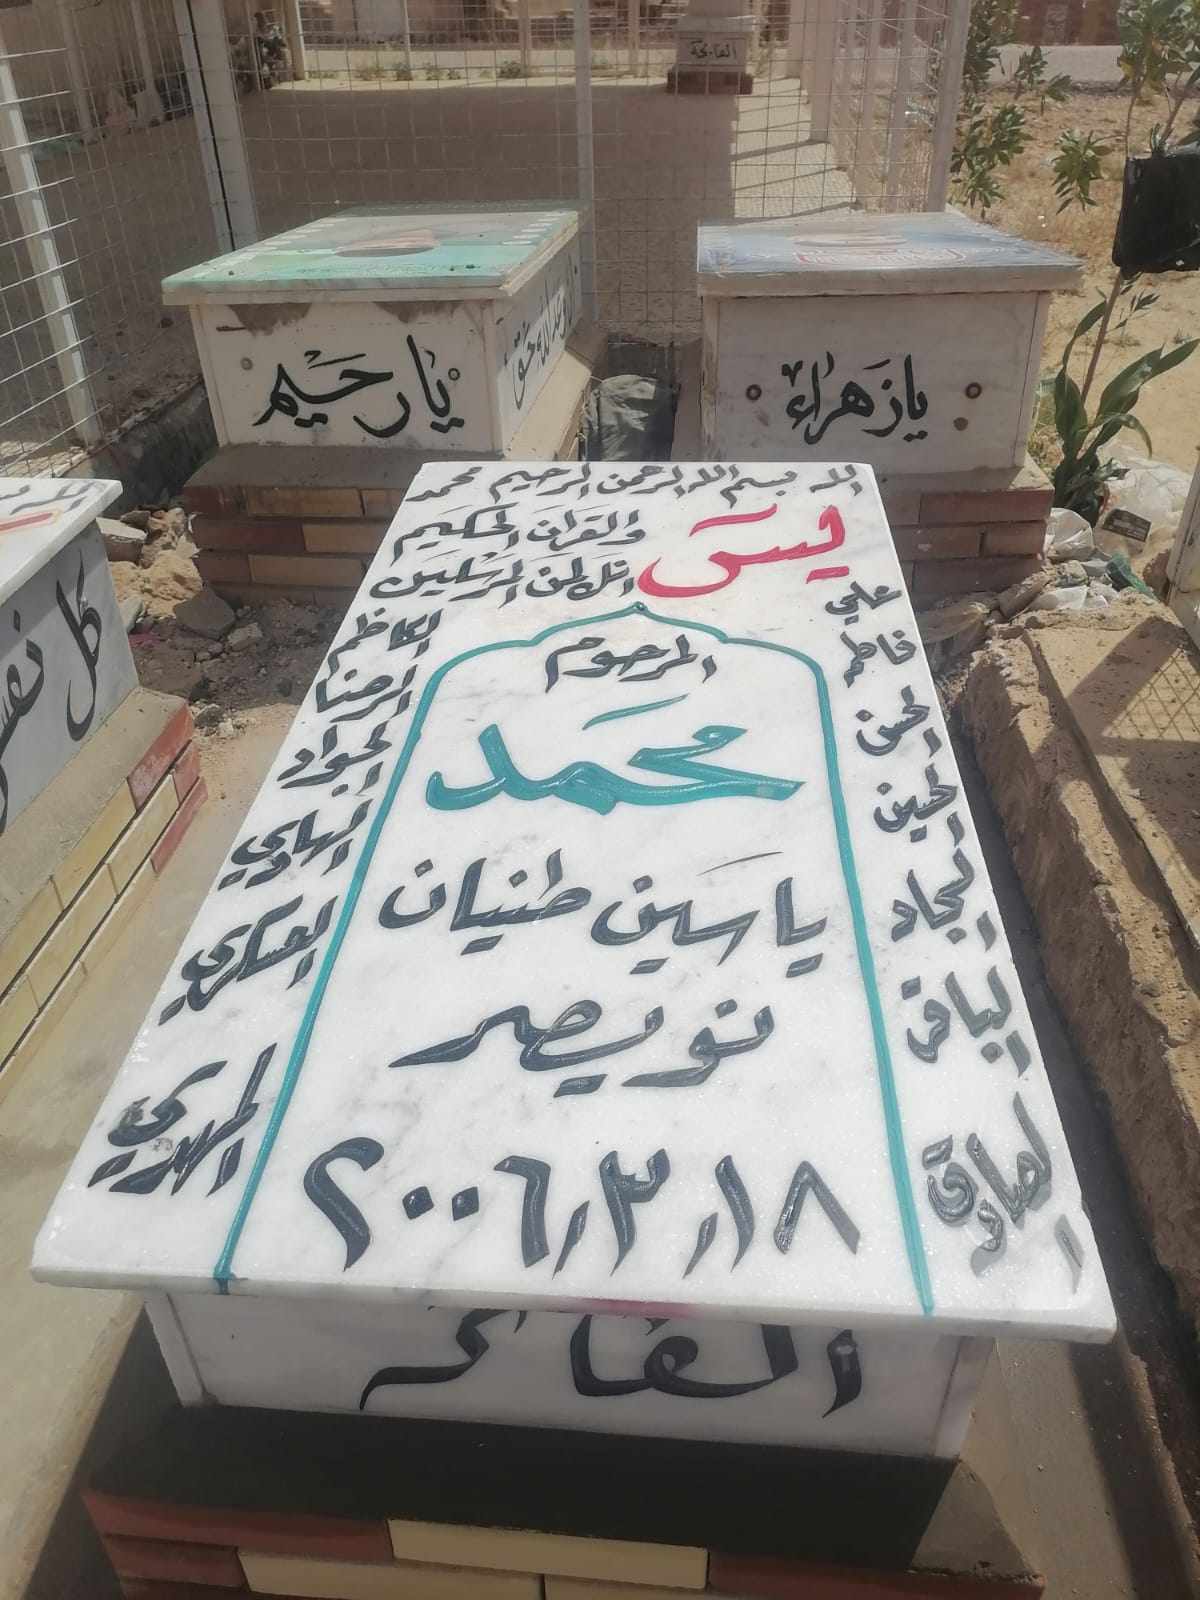 الفاتحة
يا رحيم
يا زهراء
الله بسم الله الرحمن الرحيم محمد
يس والقرآن الحكيم
انك لمن المرسلين
علي
فاطمه
الحسن
الحسين
السجاد
الباقر
الصادق
الكاظم
الرضا
الجواد
الهادي
العسكري
المهدي
المرحوم
محمد
ياسين طنيان
نويصر
٢٠٠٦/٣/١٨
كل نفس